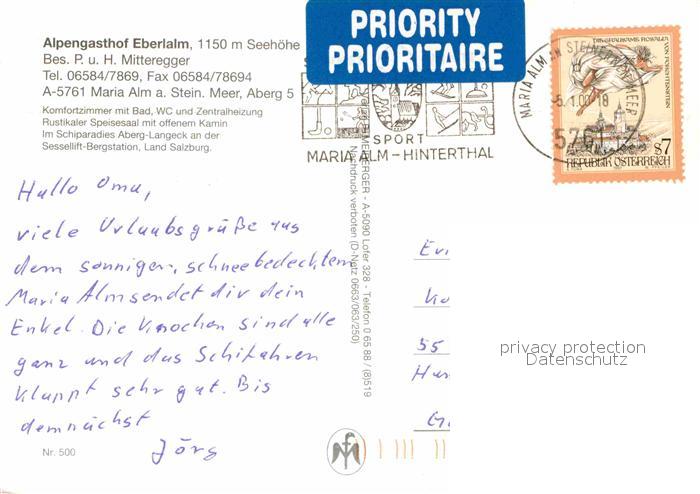 Alpengasthof Eberlalm, 1150 m Seehöhe
Bes. P. u. H. Mitteregger
Tel. 06584/7869, Fax 06584/78694
A-5761 Maria Alm a. Stein. Meer, Aberg 5
Komfortzimmer mit Bad, WC und Zentralheizung
Rustikaler Speisesaal mit offenem Kamin
Im Schiparadies Aberg-Langeck an der
Sessellift-Bergstation, Land Salzburg.
PRIORITY
PRIORITAIRE
SPORT
MARIA ALM – HINTERTHAL
MARIA ALM AM STEINERNEN MEER
-5.1.00-18
5761
DIE GRAUSAME ROSALIA VON FORCHTENSTEIN
S7
REPUBLIK ÖSTERREICH
Hallo Oma,
viele Urlaubsgrüße aus
dem sonnigen, schneebedeckten
Maria Alm sendet dir dein
Enkel. Die Knochen sind alle
ganz und das Schifahren
klappt sehr gut. Bis
demnächst
Jörg
Nr. 500
A-5090 Lofer 328 - Telefon 0 65 88 / (8)519
Nachdruck verboten (D-Netz 0663/063/250)
55
privacy protection
Datenschutz